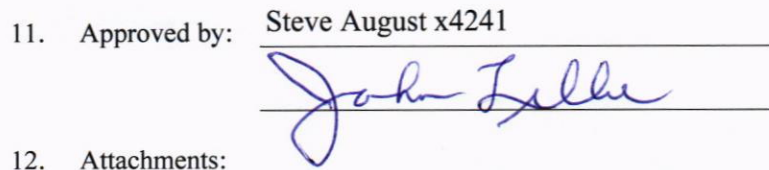 11. Approved by: Steve August x4241
John
12. Attachments: